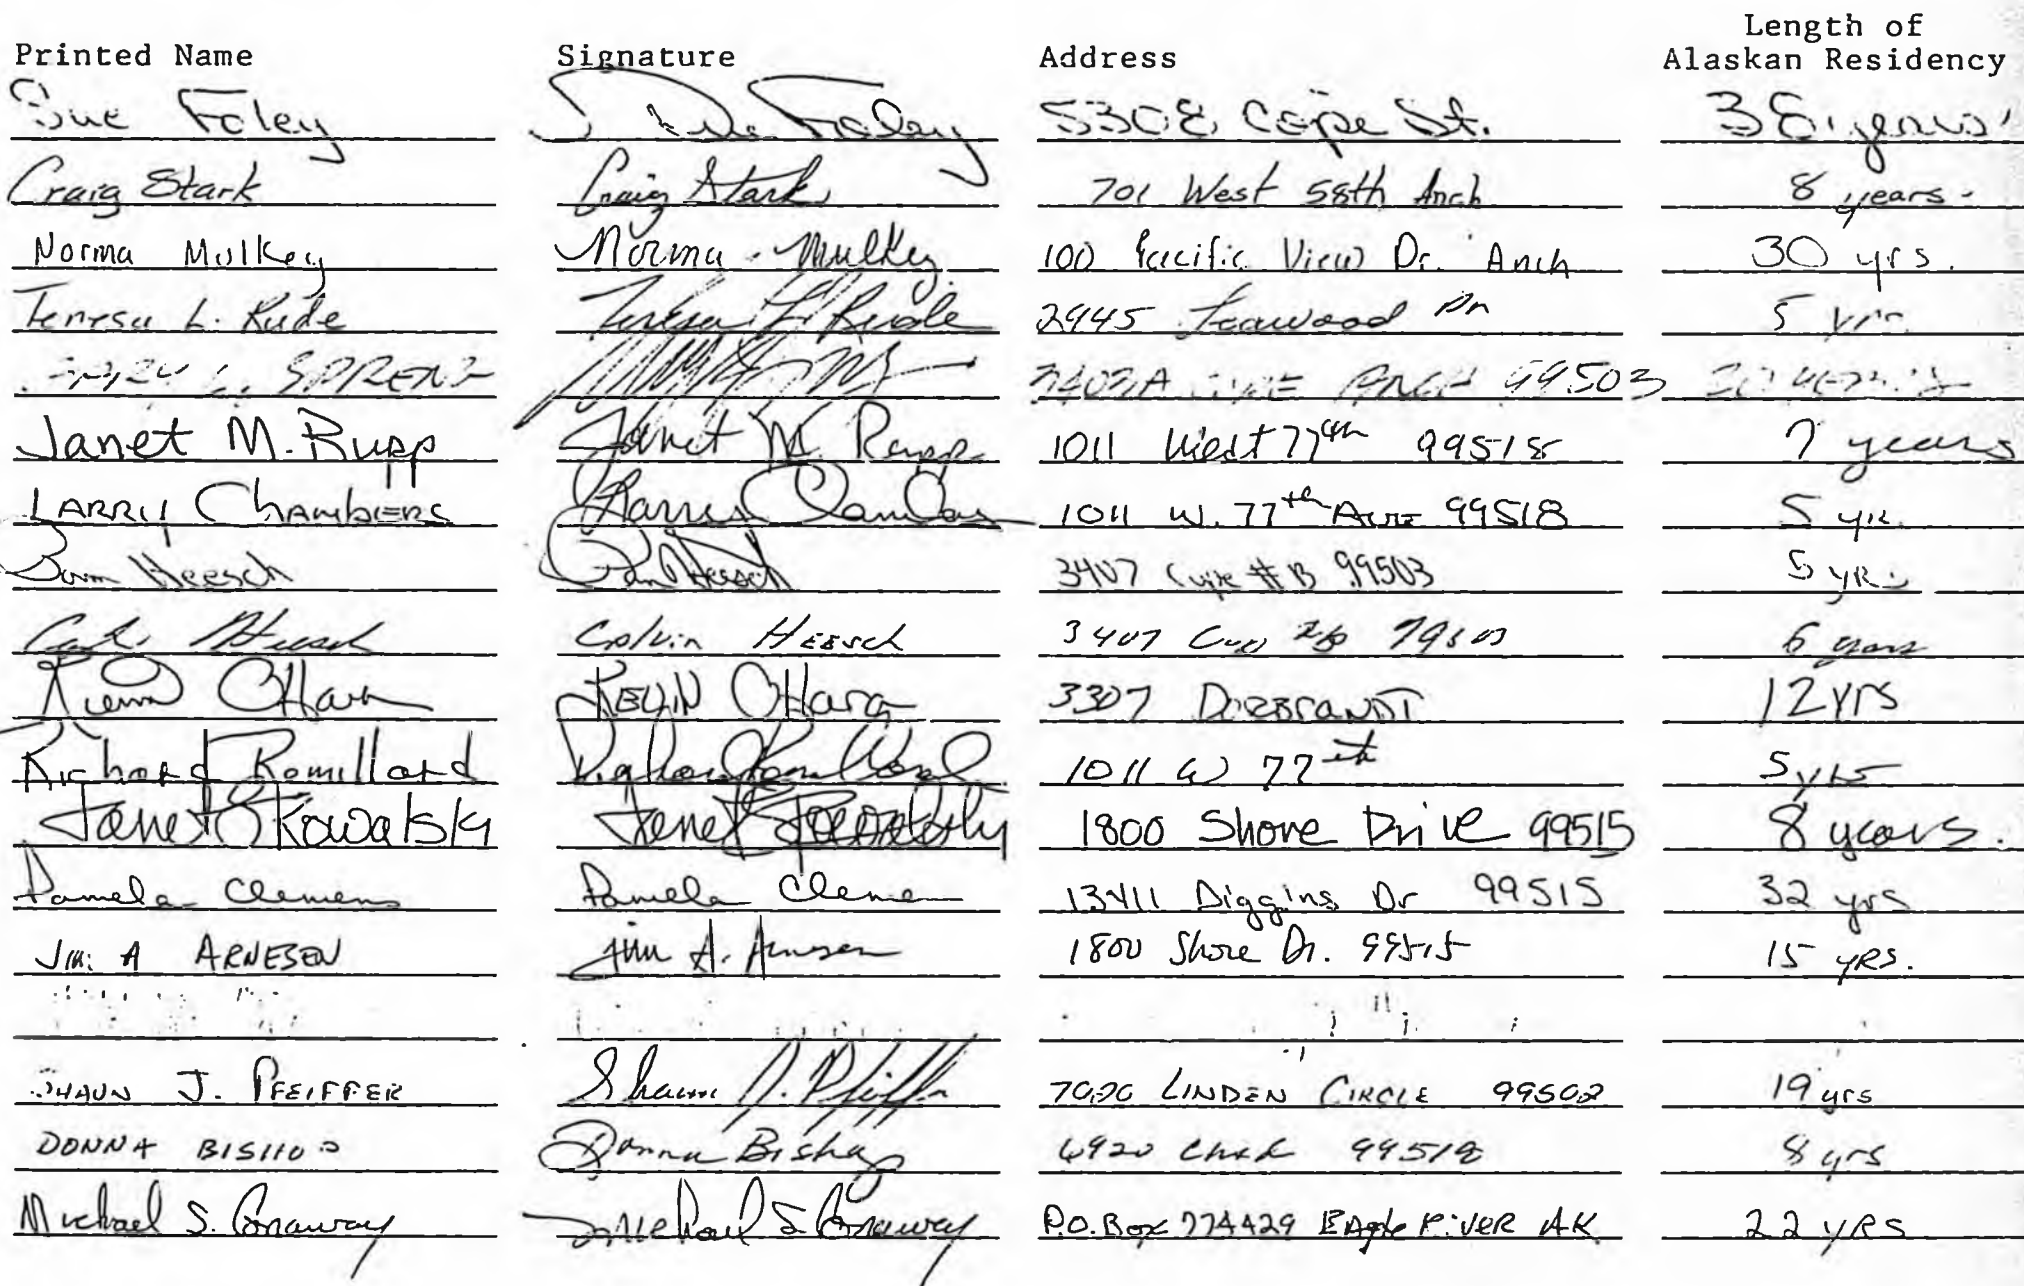 Length of
Printed Name Signature Address Alaskan Residency
Sue Foley Sue Foley 5308 Cope St. 38 years
Craig Stark Craig Stark 701 West 58th Anch 8 years
Norma Mulkey Norma Mulkey 100 Pacific View Dr. Anch 30 yrs.
Teresa L. Rude Teresa L. Rude 2945 Leawood Dr 5 yrs
L. ANCH 99503
Janet M. Rupp Janet M. Rupp 1011 West 77th 99518 7 years
LARRY Chambers 1011 W. 77th Ave 99518 5 yr.
Heesch Heesch 3407 Cope #B 99503 5 yrs
Heesch Calvin Heesch 3407 6 years
Kevin O'Hara KEVIN O'Hara 3307 DORBRANDT 12 yrs
Richard Romillard Richard Romillard 1011 W 77th 5 yrs
Janet Kowalski Janet Kowalski 1800 Shore Drive 99515 8 years.
Pamela Clemens Pamela Clemens 13411 Diggins Dr 99515 32 yrs
Jim A ARNESEN Jim A. Arnesen 1800 Shore Dr. 99515 15 YRS.
SHAUN J. PFEIFFER Shaun J. Pfeiffer 7020 LINDEN CIRCLE 99502 19 yrs
DONNA BISHOP Donna Bishop 6920 99518 8 yrs
Michael S. Conaway Michael S Conaway P.O. Box 774429 Eagle River AK 22 YRS